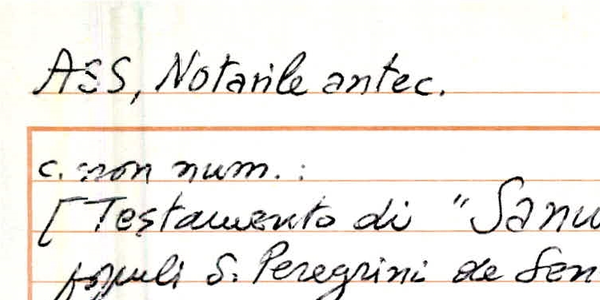 ASS, Notarile antec.
c. non num. :
[Testamento di "Sanu
populi S. Peregrini de Sen